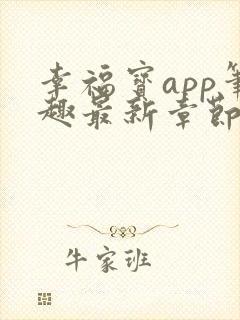 幸福寶app筆
趣最新章節
牛家班